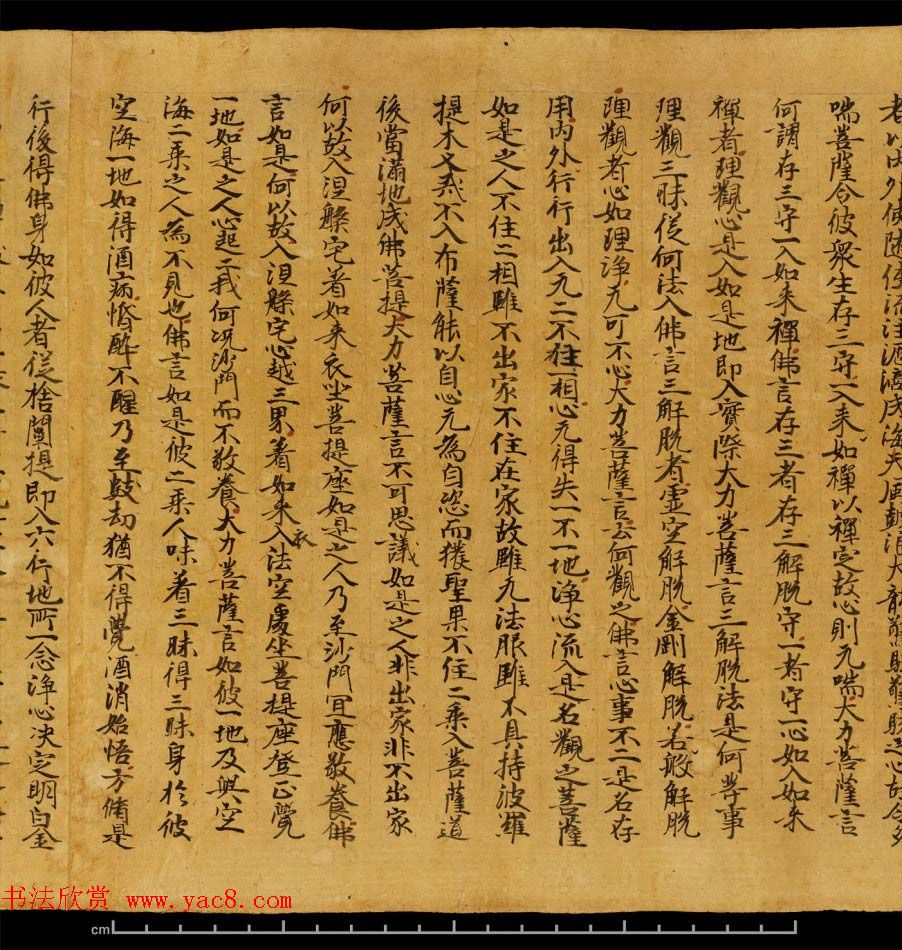 者以内外使随使流注滴滴成海天風鼓浪大龍驚駭驚駭之心故令多
喘菩薩令彼衆生存三守一入来如禪以禪定故心則无喘大力菩薩言
何謂存三守一入如来禪佛言存三者存三解脫守一者守一心如入如来
禪者理觀心是入如是地即入實際大力菩薩言三解脫法是何等事
理觀三昧從何法入佛言三解脫者虛空解脫金剛解脫若般解脫
理觀者心如理淨无可不心大力菩薩言云何觀之佛言心事不二是名存
用内外行行出入无二不住一相心无得失一不一地淨心流入是名觀之菩薩
如是之人不住二相雖不出家不住在家故雖无法服雖不具持波羅
提木叉戒不入布薩能以自心无為自恣而獲聖果不住二乘入菩薩道
後當滿地成佛菩提大力菩薩言不可思議如是之人非出家非不出家
何以故入涅槃宅著如来衣坐菩提座如是之人乃至沙門宜應敬養佛
言如是何以故入涅槃宅心越三界著如来衣入法空處坐菩提座登正覺
一地如是之人心超二我何況沙門而不敬養大力菩薩言如彼一地及與空
海二乘之人為不見也佛言如是彼二乘人味著三昧得三昧身於彼
空海一地如得酒病惛醉不醒乃至數劫猶不得覺酒消始悟方脩是
行後得佛身如彼人者從捨闡提即入六行地所一念淨心決定明白金
书法欣赏 www.yac8.com
cm